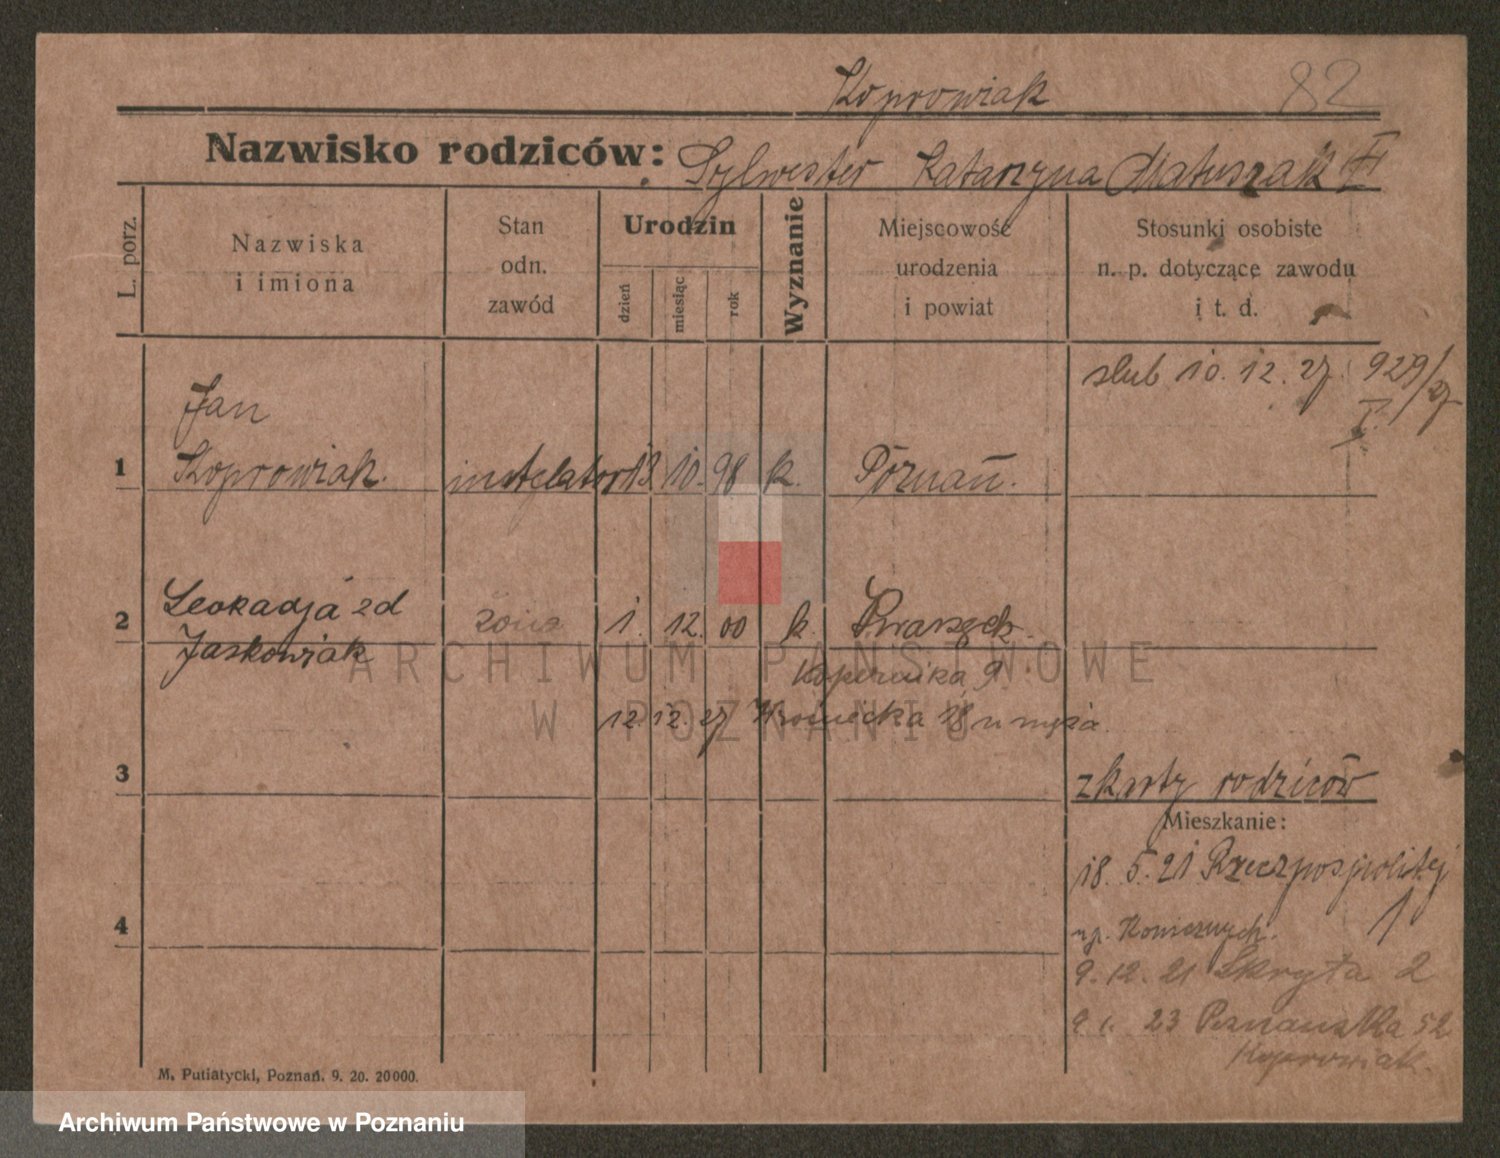 Koprowiak
82
Nazwisko rodziców: Sylwester Katarzyna Matuszak
L. porz.
Nazwiska i imiona
Stan odn. zawód
Urodzin
dzień
miesiąc
rok
Wyznanie
Miejscowość urodzenia i powiat
Stosunki osobiste n. p. dotyczące zawodu i t. d.
ślub 10. 12. 27. 929/27
I.
Jan
1 Koprowiak. instelator 13. 10. 98 k. Poznań.
2 Leokadja zd żona 1. 12. 00 k.
Jaskowiak
Kopernika 9
12. 12. 27 18 u męża.
3
z karty rodziców
Mieszkanie:
18. 5. 21 Rzeczpospolitej
1
4
9. 12. 21 Skryta 2
9 1. 23 Poznańska 52
Koprowiak.
M. Putiatycki, Poznań. 9. 20. 20000.
ARCHIWUM PAŃSTWOWE
W POZNANIU
Archiwum Państwowe w Poznaniu